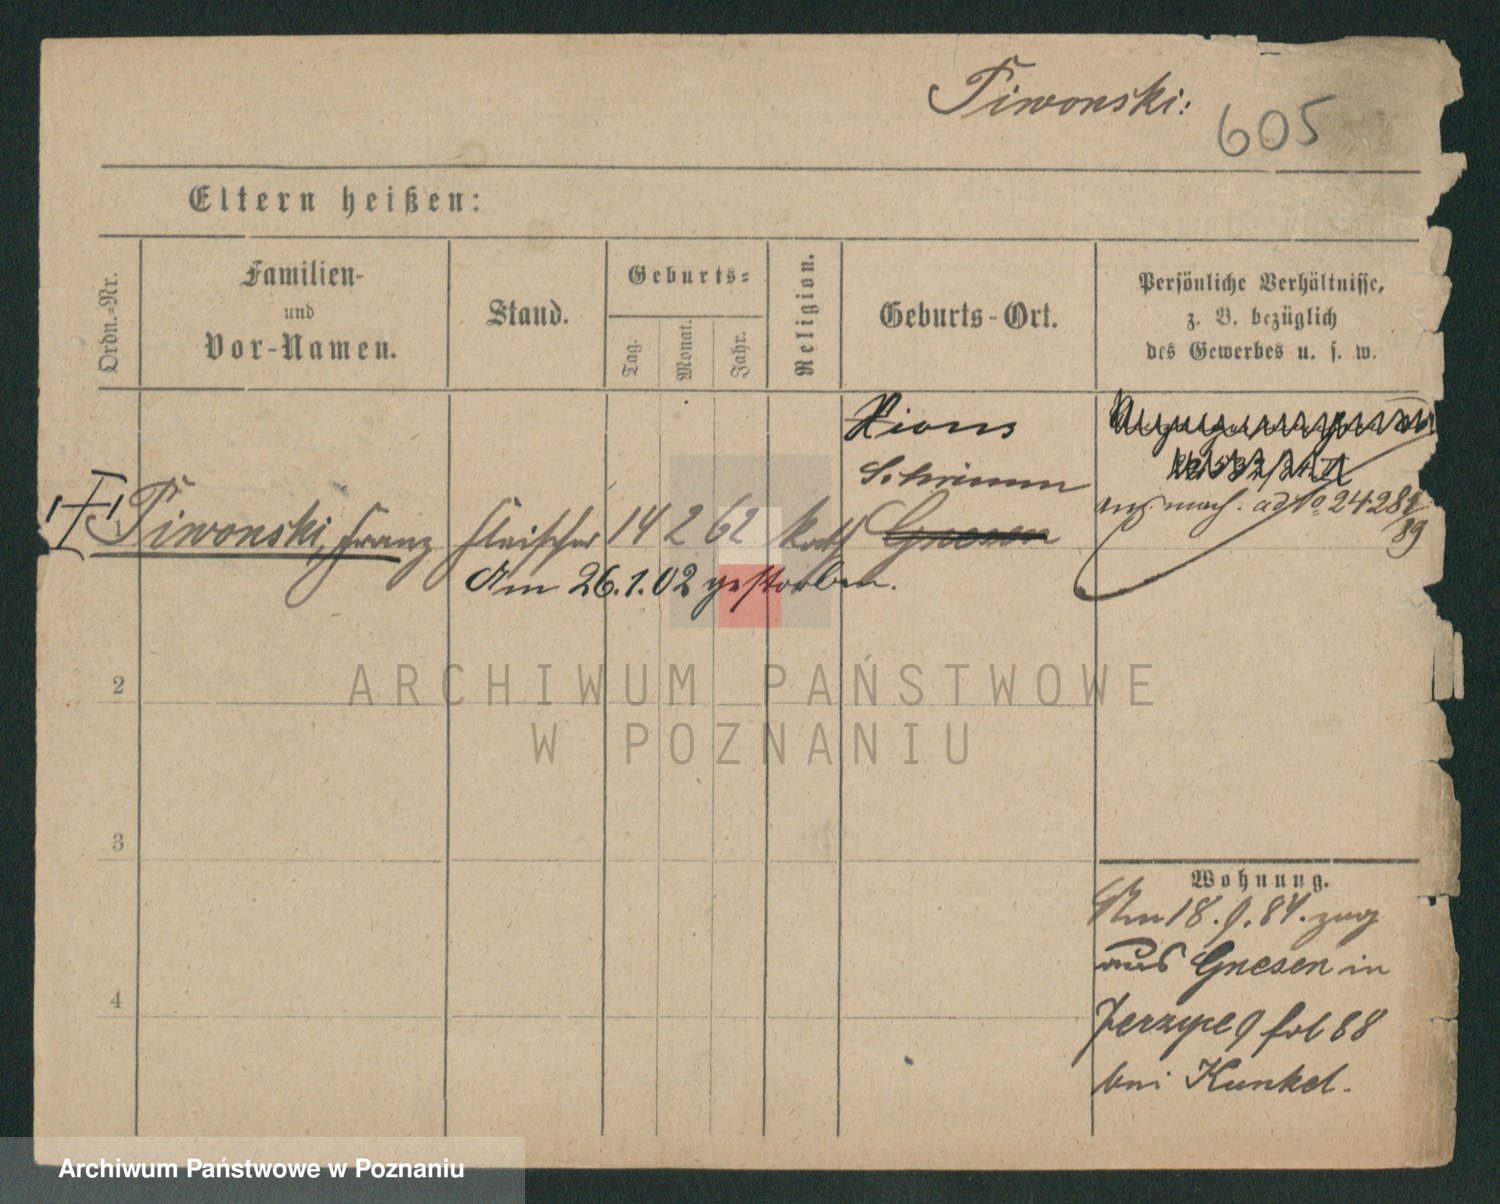 Tiwonski:
605
Eltern heißen:
Ordn.-Nr.
Familien-
und
Vor-Namen.
Stand.
Geburts-
Tag.
Monat.
Jahr.
Religion.
Geburts-Ort.
Persönliche Verhältnisse,
z. B. bezüglich
des Gewerbes u. s. w.
Xions
Schrimm
Tiwonski, Franz Fleischer 14 2 62 kath Gnesen
No 24281/89
Am 26.1.02 gestorben.
2
3
4
ARCHIWUM PAŃSTWOWE
W POZNANIU
Wohnung.
Am 18. 9. 84. zug
aus Gnesen in
Jerzyce 9 fol 88
bei Kunkel.
Archiwum Państwowe w Poznaniu